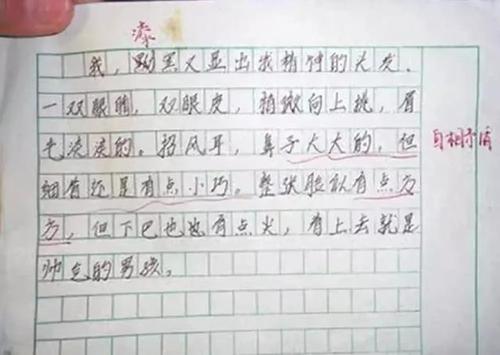 漆
我，黝黑又显出我精神的头发，
一双眼睛，双眼皮，稍微向上挑，眉
毛淡淡的。招风耳，鼻子大大的，但
细看还是有点小巧。整张脸似有点方
方，但下巴也也有点尖，看上去就是
帅气的男孩。
自相矛盾